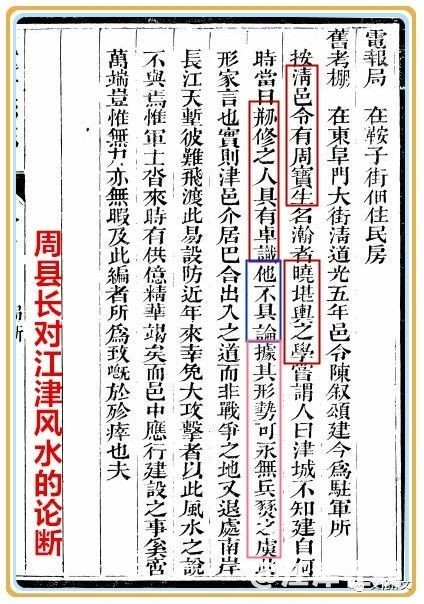 電報局　在鞍子街佃住民房
舊考棚　在東阜門大街淸道光五年邑令陳叙頌建今爲駐軍所
按淸邑令有周寶生名瀚者曉堪輿之學嘗謂人曰津城不知建自何
時當日刱修之人具有卓識他不具論據其形勢可永無兵燹之虞此
形家言也實則津邑介居巴合出入之道而非戰爭之地又退處南岸
長江天塹彼難飛渡此易設防近年來幸免大攻擊者以此風水之說
不與焉惟軍士沓來時有供億精華竭矣而邑中應行建設之事奚啻
萬端豈惟無力亦無暇及此編者所爲致慨於殄瘁也夫
周县长对江津风水的论断